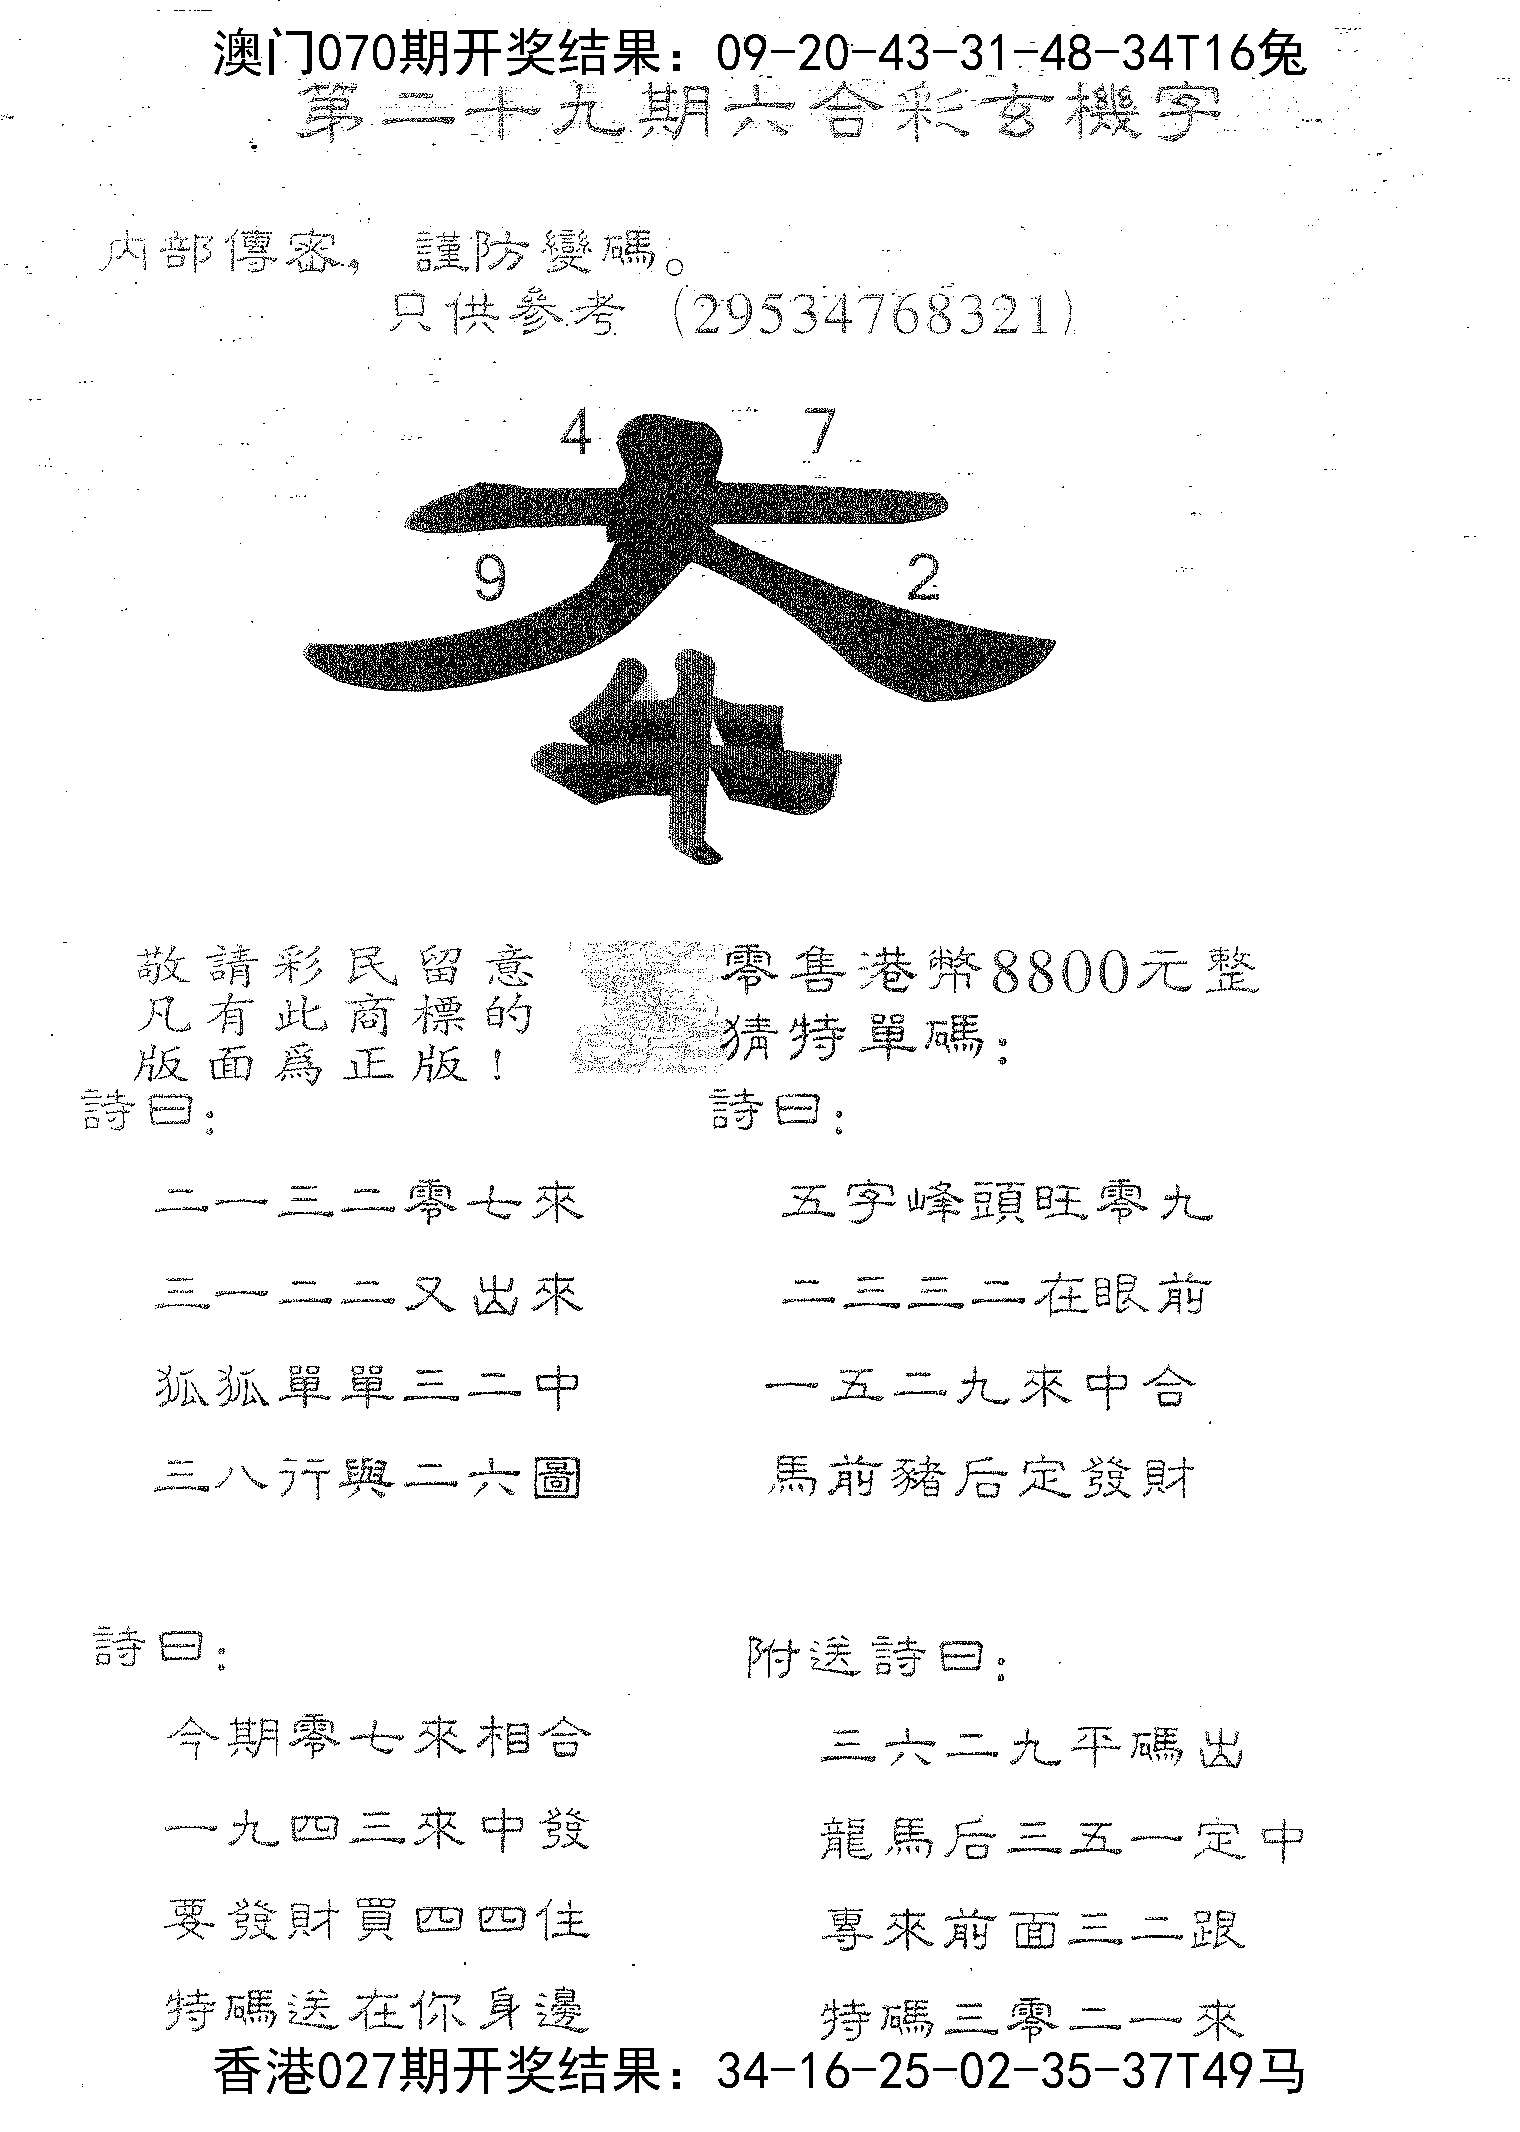 澳门070期开奖结果：09-20-43-31-48-34T16兔
第二十九期六合彩玄機字
内部傳密，謹防變碼。
只供參考（29534768321）
4 7
9 2
敬請彩民留意
凡有此商標的
版面爲正版！
零售港幣8800元整
猜特單碼：
詩曰：
二一三二零七來
三一二二又出來
狐狐單單三二中
三八行與二六圖
詩曰：
五字峰頭旺零九
二三三二在眼前
一五二九來中合
馬前豬后定發財
詩曰：
今期零七來相合
一九四三來中發
要發財買四四住
特碼送在你身邊
附送詩曰：
三六二九平碼出
龍馬后三五一定中
專來前面三二跟
特碼三零二一來
香港027期开奖结果：34-16-25-02-35-37T49马